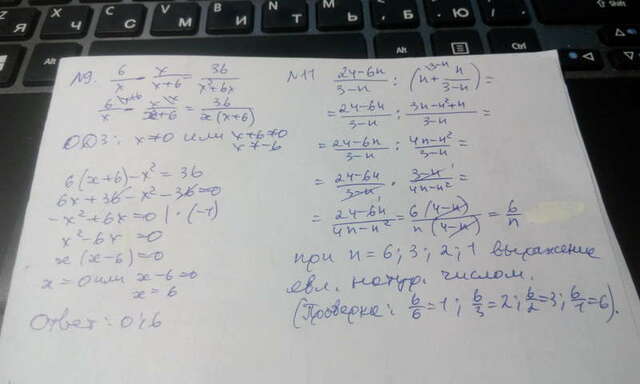 Z Я
X Ч
C С
V М
B И
N Т
M Ь
< Б
> Ю
Alt
Alt
Ctrl
Shift
№9. 6/x - x/x+6 = 36/x²+6x
6\x+6/x - x\x/x+6 = 36/x(x+6)
ОДЗ: x≠0 или x+6≠0
x≠-6
6(x+6)-x² = 36
6x+36-x²-36=0
-x²+6x=0 | ·(-1)
x²-6x=0
x(x-6)=0
x=0 или x-6=0
x=6
Ответ: 0; 6
№11 24-6n/3-n : (n\3-n + n/3-n) =
= 24-6n/3-n : 3n-n²+n/3-n =
= 24-6n/3-n : 4n-n²/3-n =
= 24-6n/3-n · 3-n/4n-n² =
= 24-6n/4n-n² = 6(4-n)/n(4-n) = 6/n
при n=6; 3; 2; 1 выражение
явл. натур. числом.
(Проверка: 6/6=1; 6/3=2; 6/2=3; 6/1=6).